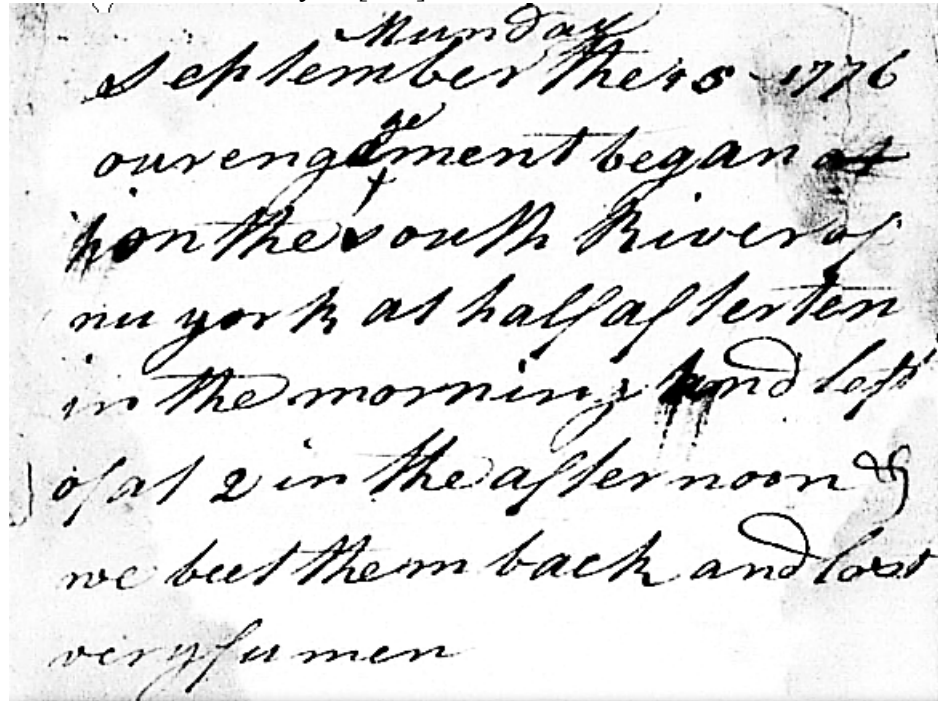 Munday
September the 15 - 1776
our engagement began at
on the South River of
nu york at half after ten
in the morning and left
of at 2 in the afternoon &
we beet them back and lost
very fu men